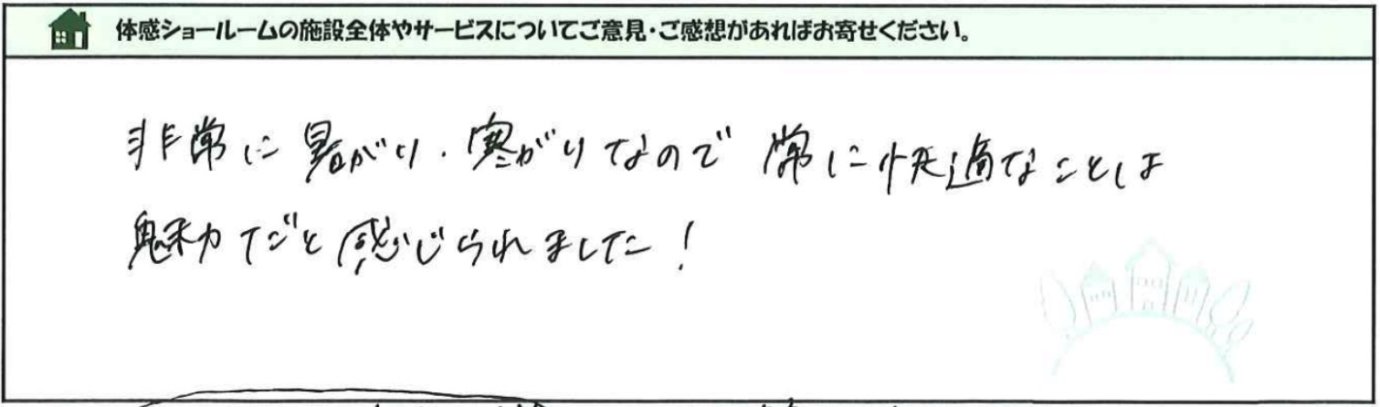 体感ショールームの施設全体やサービスについてご意見・ご感想があればお寄せください。
非常に暑がり・寒がりなので 常に快適なことは
魅力だと感じられました!